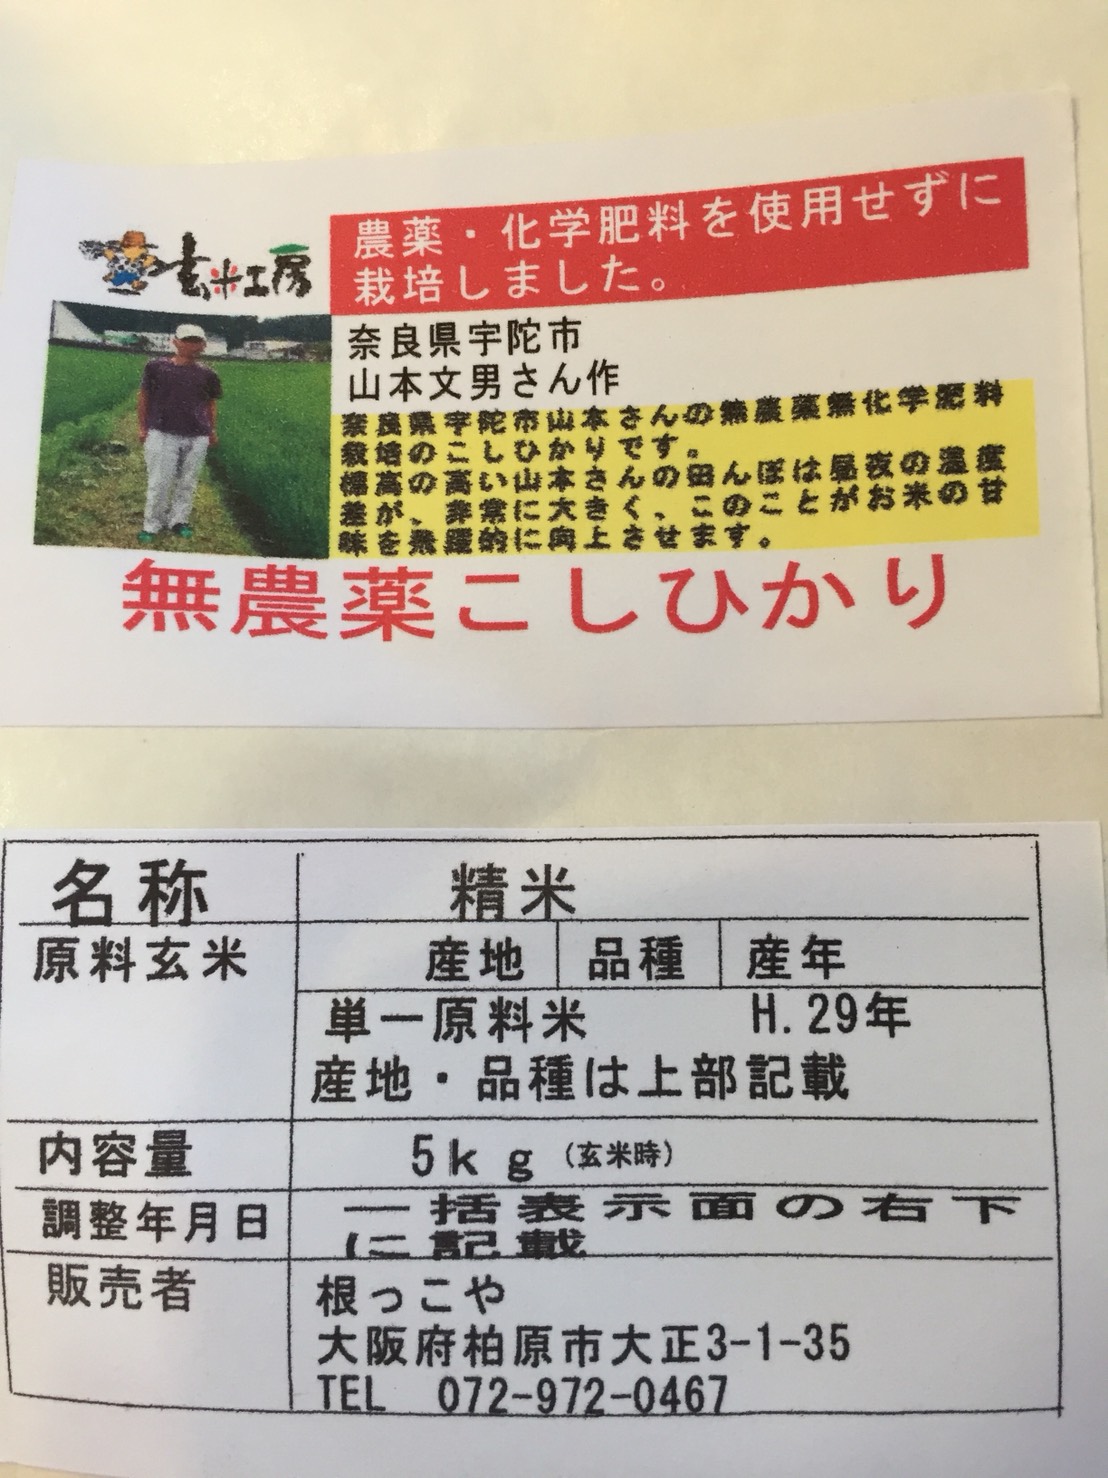 玄米工房
農薬・化学肥料を使用せずに
栽培しました。
奈良県宇陀市
山本文男さん作
奈良県宇陀市山本さんの無農薬無化学肥料
栽培のこしひかりです。
標高の高い山本さんの田んぼは昼夜の温度
差が、非常に大きく、このことがお米の甘
味を飛躍的に向上させます。
無農薬こしひかり
名称 精米
原料玄米 産地 品種 産年
単一原料米 H.29年
産地・品種は上部記載
内容量 5kg (玄米時)
調整年月日 一括表示面の右下
に記載
販売者 根っこや
大阪府柏原市大正3-1-35
TEL 072-972-0467